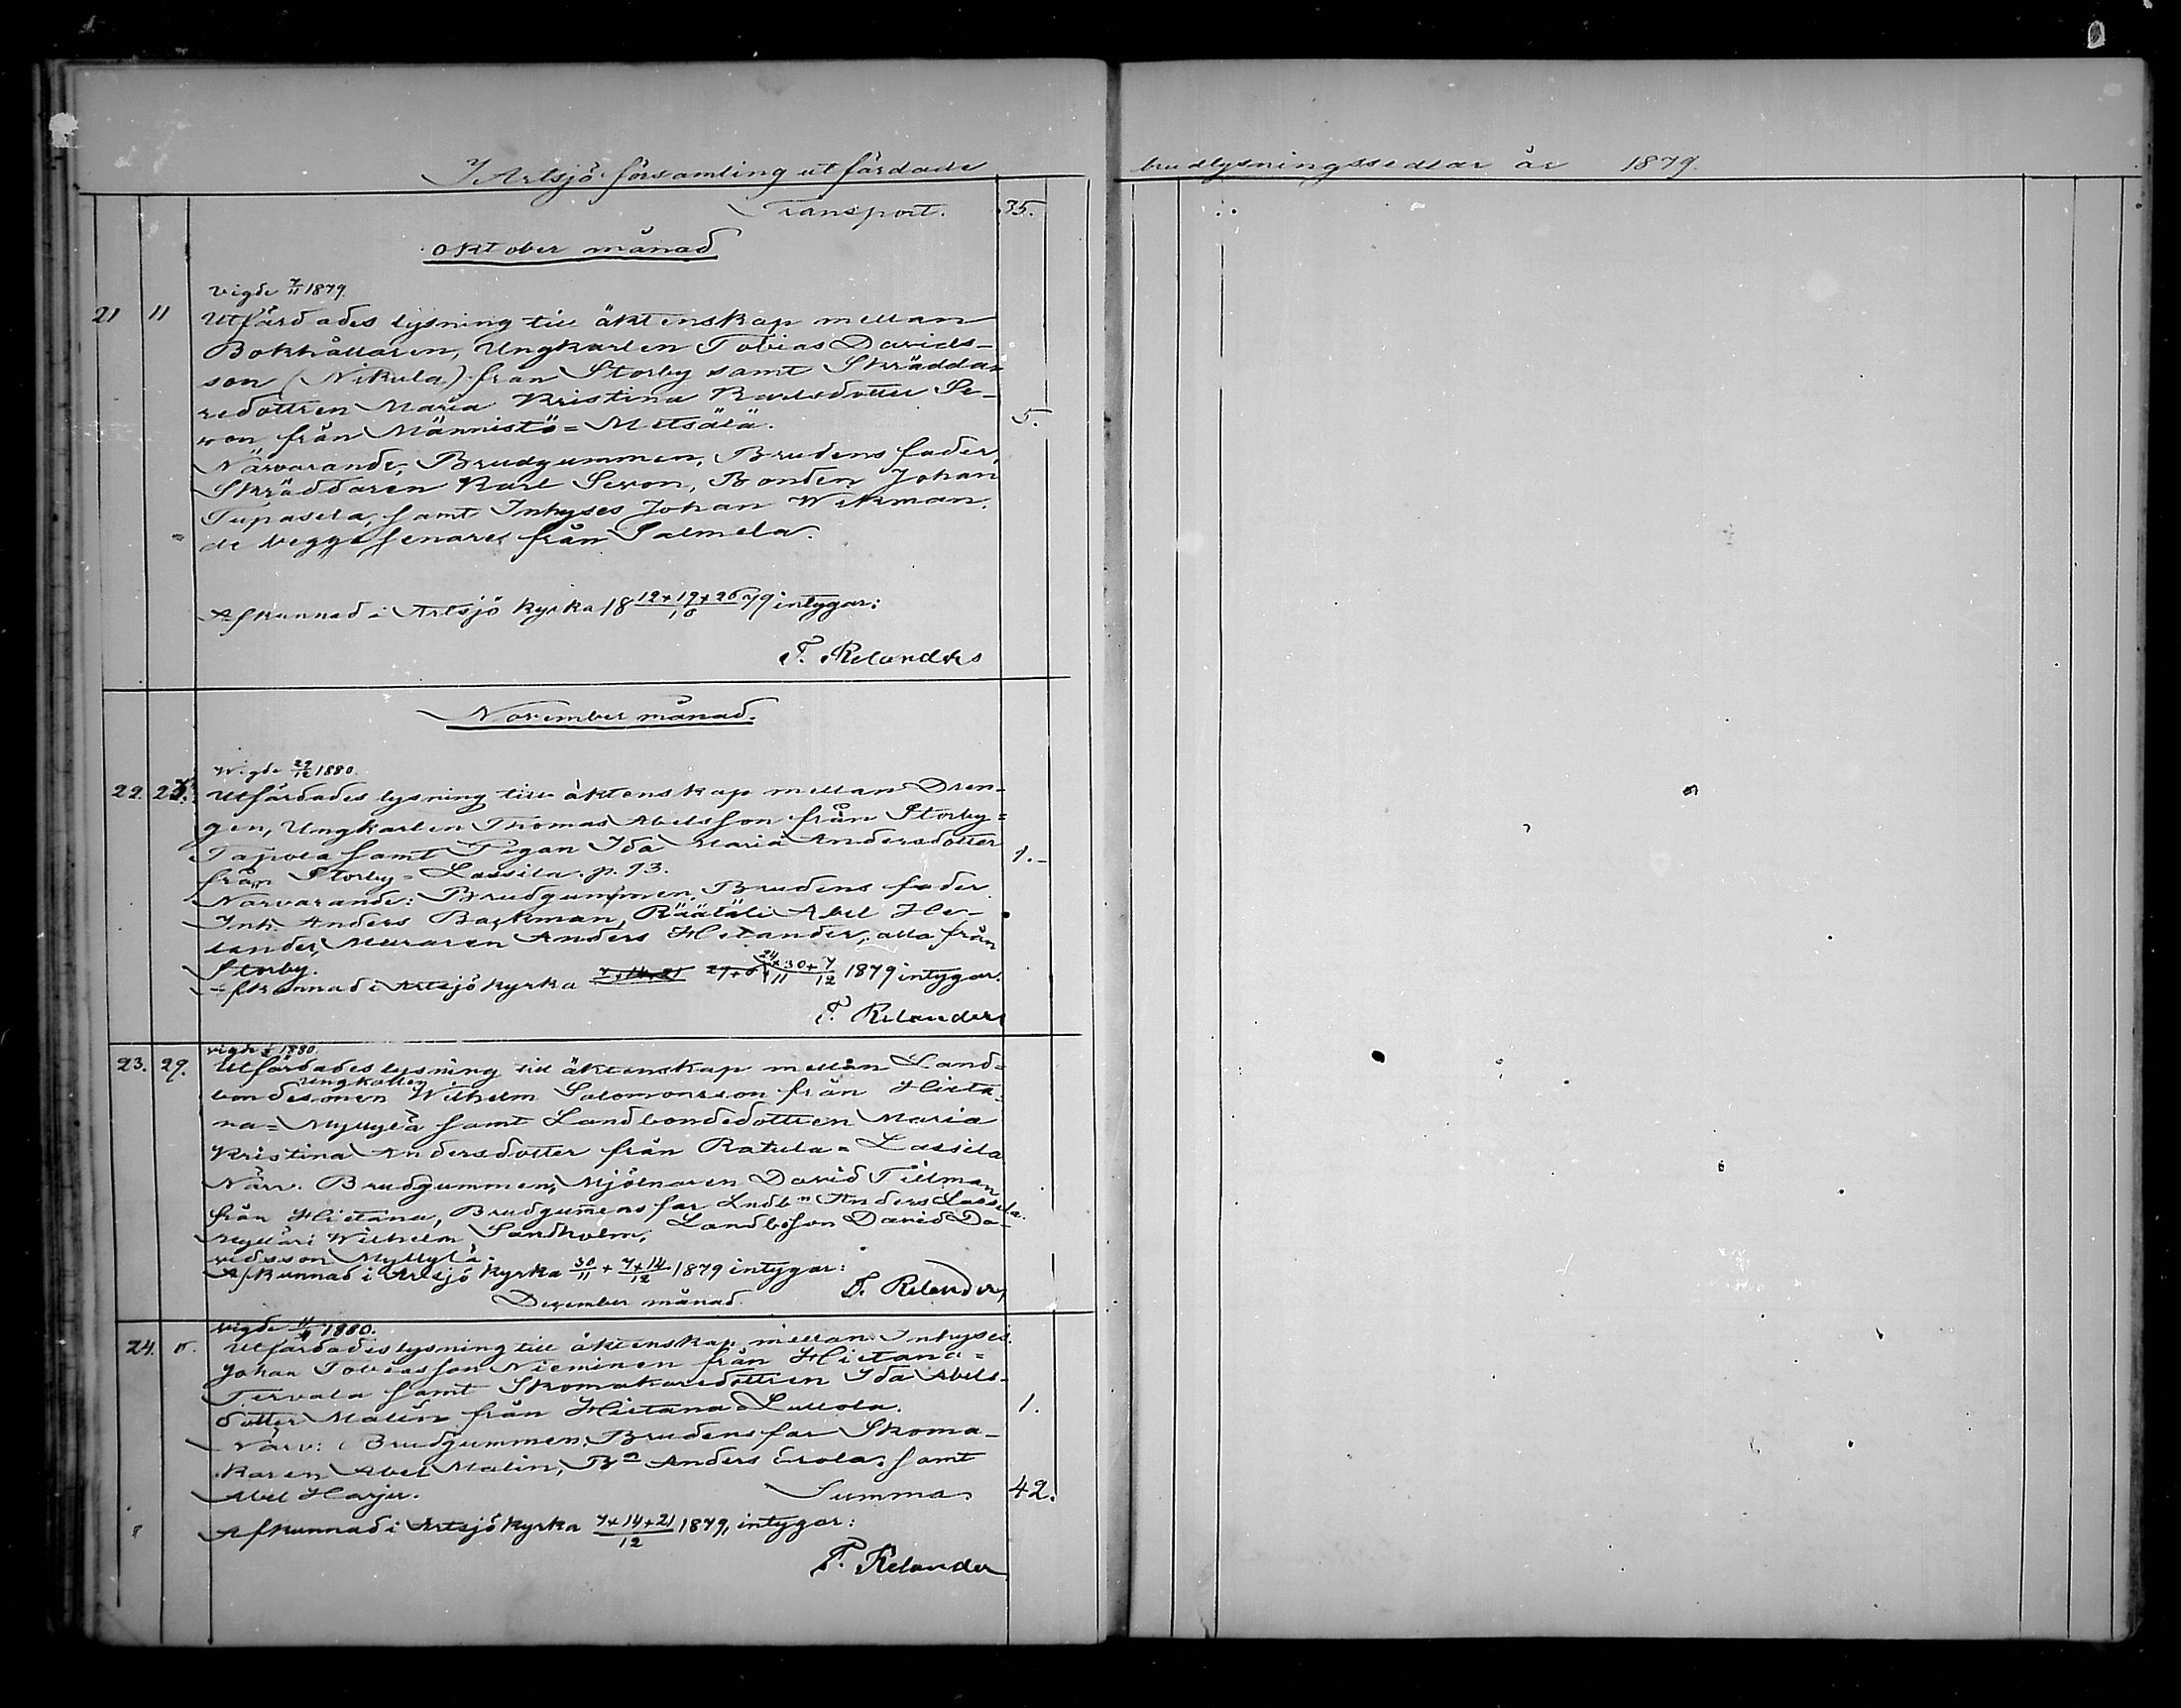 I Artsjö församling utfärdade brudlysningssedlar år 1879.
Transport. 35.
Oktober månad
Vigde 7/11 1879.
21 11 Utfärdades lysning till äktenskap mellan
Bokhållaren, Ungkarlen Tobias Davids-
son (Nikula) från Storby samt Skrädda-
redottren Maria Kristina Karlsdotter Se-
von från Männistö=Metsälä. 5.
Närvarande, Brudgummen, Brudens fader,
Skräddaren Karl Sevon, Bonden Johan
Tupasela, samt Inhyses Johan Wikman,
de begge senares från Salmela.
Afkunnad i Artsjö kyrka 18 12+19+26/10 79 intygar:
F. Relander
November månad.
Wigde 29/12 1880.
22. 23. Utfärdades lysning till äktenskap mellan Dren-
gen, Ungkarlen Thomas Abelsson från Storby=
Tapola samt Pigan Ida Maria Andersdotter
från Storby=Lassila. p. 93. 1.-
Närvarande: Brudgummen, Brudens fader
Inh. Anders Backman, Räätäli Abel He-
lander, Muraren Anders Helander, alla från
Storby.
Afkunnad i Artsjö kyrka 7+14+21 24+30/11 + 7/12 1879 intygar.
F. Relander
vigde 1880.
23. 29. Utfärdades lysning till äktenskap mellan Land-
ungkarlen
bondesonen Wilhelm Salomonsson från Hieta-
na=Myllylä samt Landbondedottren Maria
Kristina Andersdotter från Ratula=Lassila
Närv. Brudgummen, Mjölnaren David Tillman
från Hietana, Brudgumens far Lndbn Anders Lassila.
Mylläri Wilhelm Sandholm, Landb.son David Da-
vidsson Myllylä.
Afkunnad i Artsjö kyrka 30/11 + 7+14/12 1879 intygar:
F. Relander
December månad.
vigde 1880.
24. Utfärdades lysning till äktenskap mellan Inhyses.
Johan Tobiasson Nieminen från Hietana=
Tervala samt Skomakaredottren Ida Abels-
dotter Malin från Hietana Lullola. 1.
Närv: Brudgummen, Brudens far Skoma-
karen Abel Malin, Bn Anders Erola, samt
Abel Harju. Summa 42.
Afkunnad i Artsjö kyrka 7+14+21/12 1879, intygar:
F. Relander